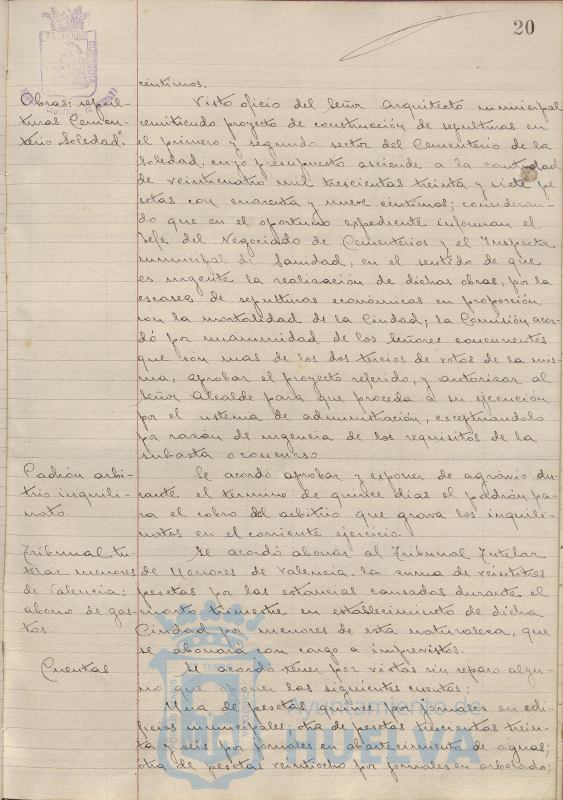 20
céntimos.
Obras: sepul-
turas Cemen-
terio Soledad.
Visto oficio del Señor Arquitecto municipal
remitiendo proyecto de construcción de sepulturas en
el primero y segundo sector del Cementerio de la
Soledad, cuyo presupuesto asciende a la cantidad
de veinticuatro mil trescientas treinta y siete pe
setas con cuarenta y nueve céntimos; consideran-
do que en el oportuno expediente informan el
Jefe del Negociado de Cementerios y el Inspector
municipal de Sanidad, en el sentido de que
es urgente la realización de dichas obras, por la
escasez de sepulturas económicas en proporción
con la mortalidad de la Ciudad; la Comisión acor-
dó por unanimidad de los Señores concurrentes
que son mas de los dos tercios de votos de la mis-
ma, aprobar el proyecto referido, y autorizar al
Señor Alcalde para que proceda a su ejecución
por el sistema de administración, exceptuándolo
por razón de urgencia de los requisitos de la
subasta o concurso
Padrón arbi-
trio inquili-
nato
Se acordó aprobar y exponer de agravio du-
rante el término de quince días el padrón pa-
ra el cobro del arbitrio que grava los inquili-
natos en el corriente ejercicio.
Tribunal tu-
telar menores
de Valencia:
abono de gas-
tos.
Se acordó abonar al Tribunal Tutelar
de Menores de Valencia, la suma de veintitres
pesetas por las estancias causadas durante el
cuarto trimestre en establecimiento de dicha
Ciudad por menores de esta naturaleza, que
se abonara con cargo a imprevistos.
Cuentas
Se acordó tener por vistas sin reparo algu-
no que oponer las siguientes cuentas:
Una de pesetas quince por jornales en edi-
ficios municipales; otra de pesetas trescientas trein-
ta y seis por jornales en abastecimiento de aguas;
otra de pesetas veintiocho por jornales en arbolado;
Ayuntamiento de
HUELVA